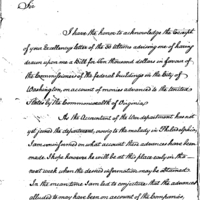 Sir
I have the honor to acknowledge the receipt
of your Excellency's letter of the advising me of having
drawn upon me a bill for ten thousand dollars in favour of
the Commissioners of the federal buildings in the City of
Washington, on account of monies advanced to the United
States by the Commonwealth of Virginia.
As the Accountant of the War department has not
yet joined the department, owing to the malady in Philadelphia,
I am uninformed on what account these advances have been
made. I hope however he will be at this place early in the
next week when the desired information may be obtained.
In the meantime I am led to conjecture that the advances
alluded to may have been on account of the